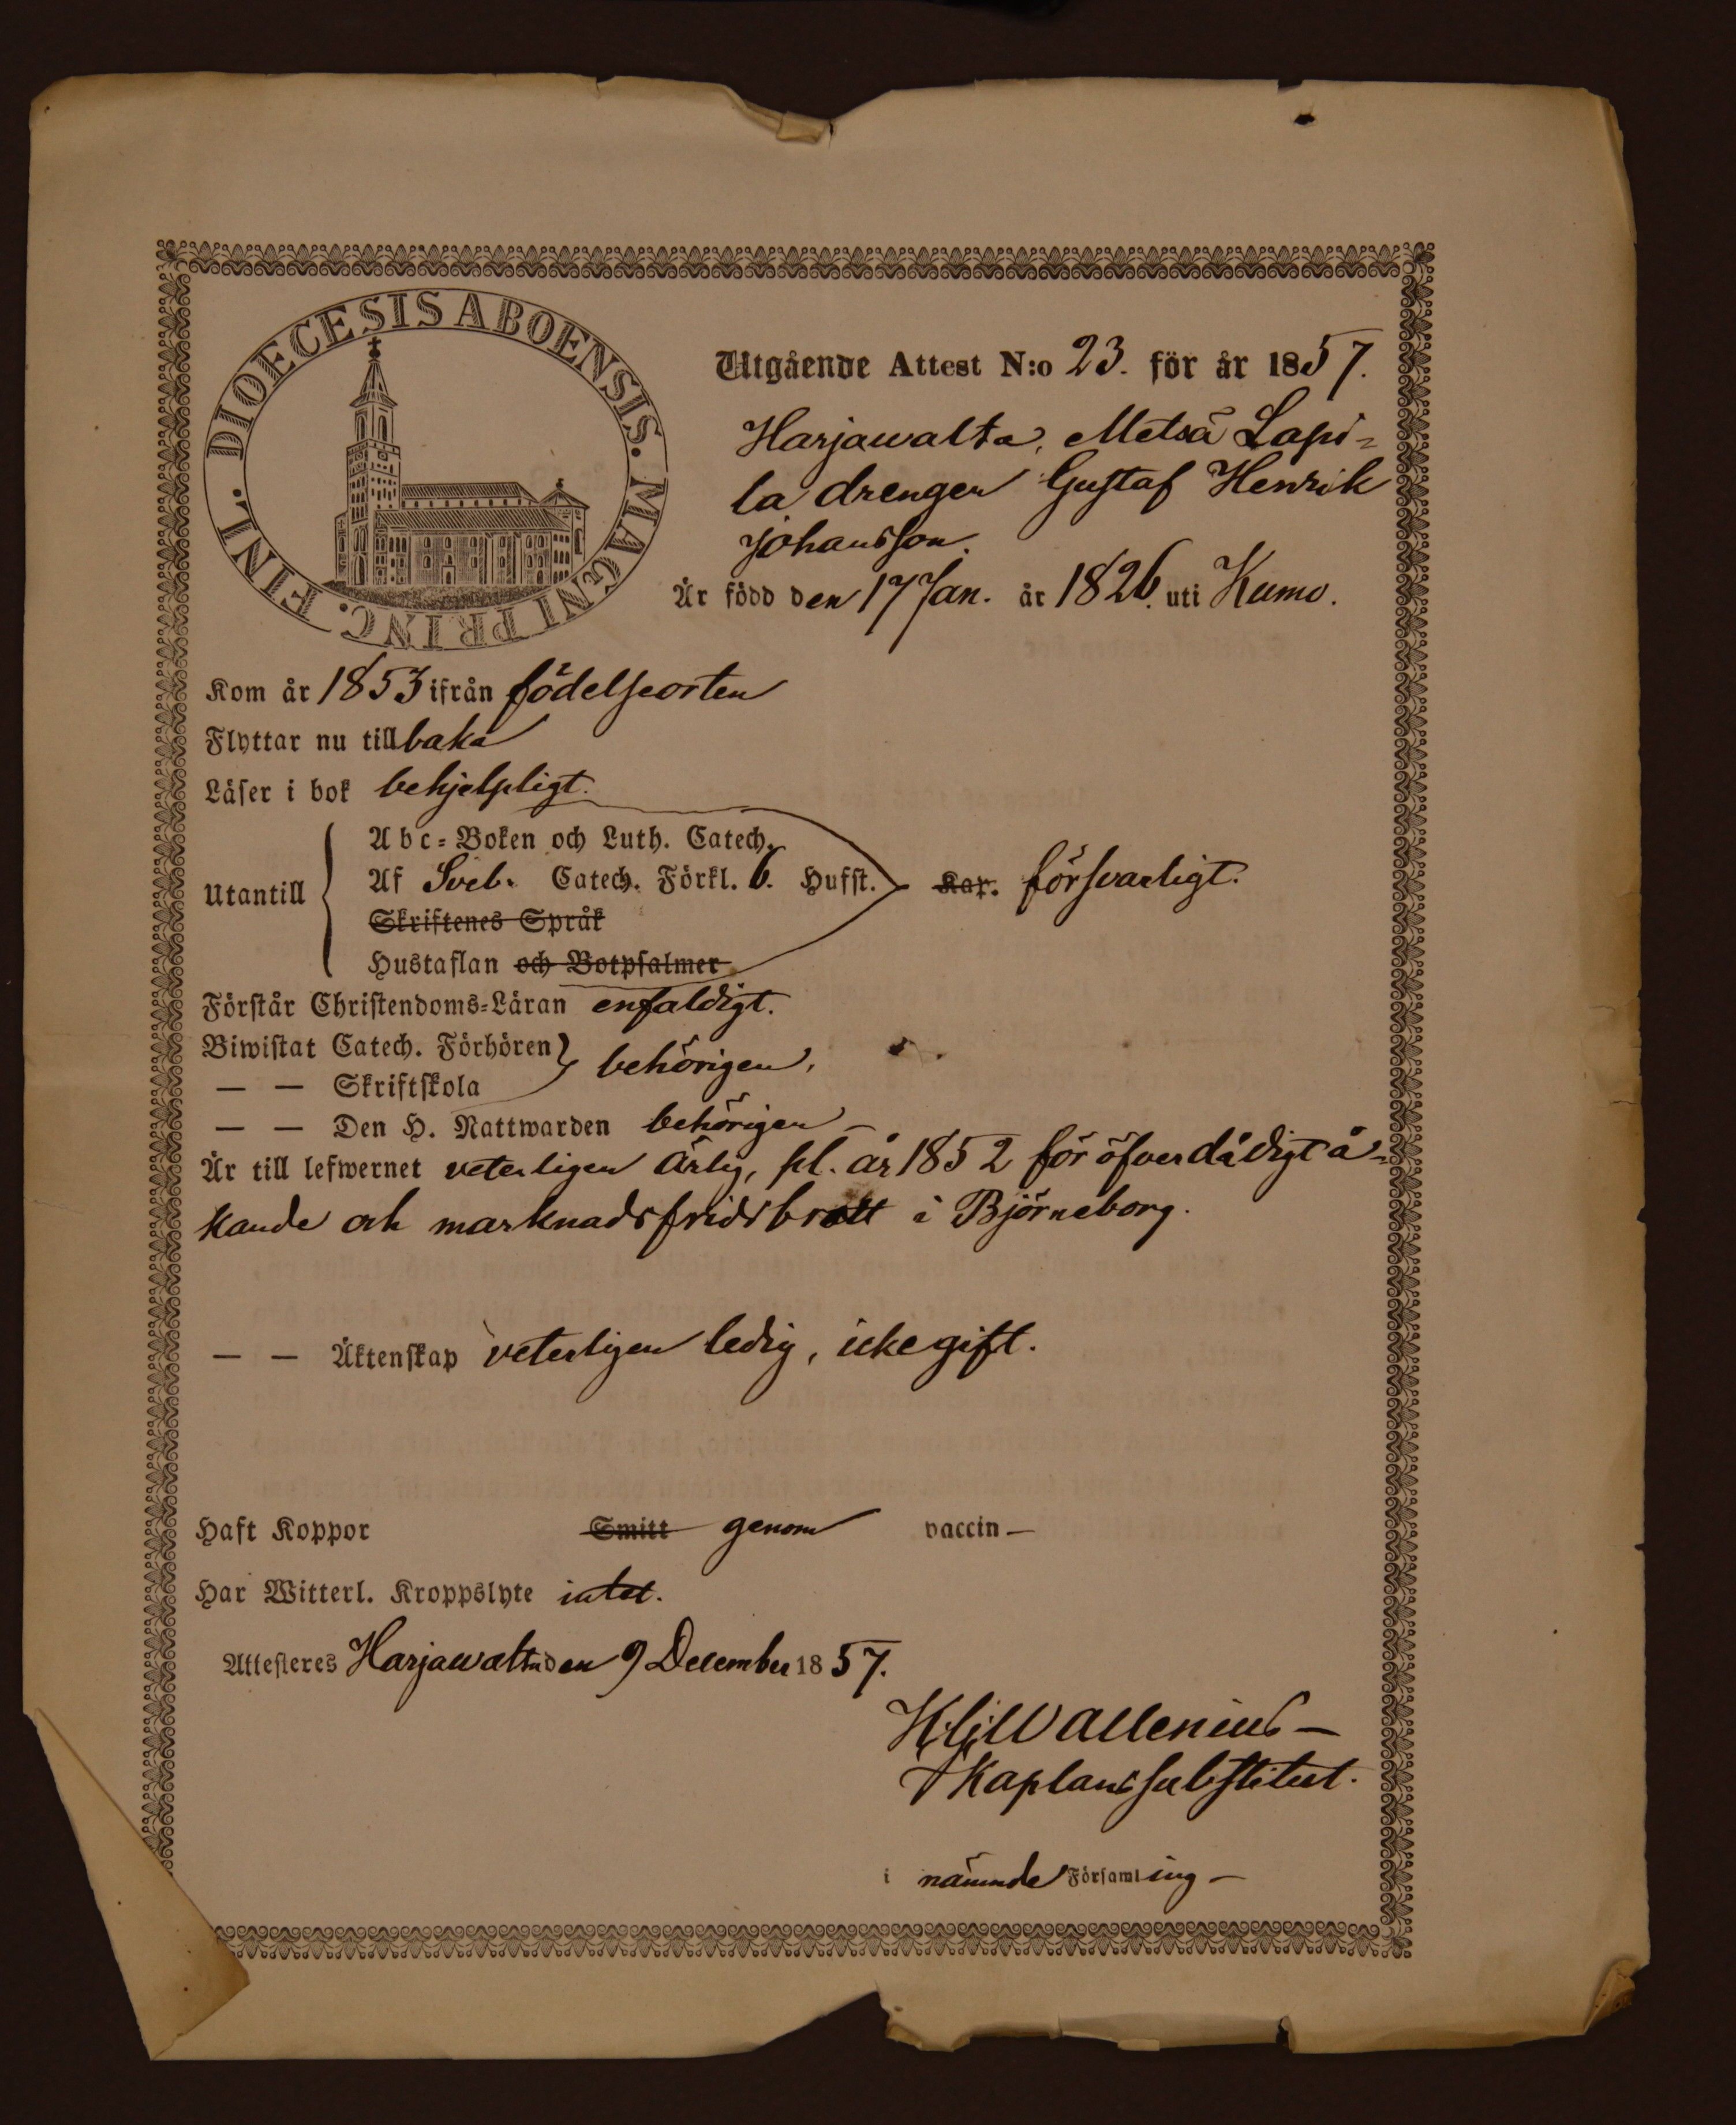 DIOECESIS ABOENSIS. MAGNI PRINC. FINL.
Utgående Attest N:o 23. för år 1857.
Harjawalta, Metsä Lapi=
la drengen Gustaf Henrik
Johansson.
Är född den 17 Jan. år 1826. uti Kumo.
Kom år 1853 ifrån födelseorten
Flyttar nu tillbaka
Läser i bok behjelpligt.
Utantill
Abc=Boken och Luth. Catech.
Af Sveb. Catech. Förkl. 6. Hufst. Kap. försvarligt.
Skriftenes Språk
Hustaflan och Botpsalmer
Förstår Christendoms=Läran enfaldigt.
Biwistat Catech. Förhören
— — Skriftskola
behörigen.
— — Den H. Nattwarden behörigen —
Är till lefwernet veterligen ärlig, pl. år 1852 för öfverdådigt å=
kande och marknadsfridsbrott i Björneborg.
— — Äktenskap veterligen ledig, icke gift.
Haft Koppor Smitt genom vaccin —
Har Witterl. Kroppslyte intet.
Attesteres Harjawalta den 9 December 1857.
Wallenius —
Kaplanssubstitut.
i nämnde Församling —